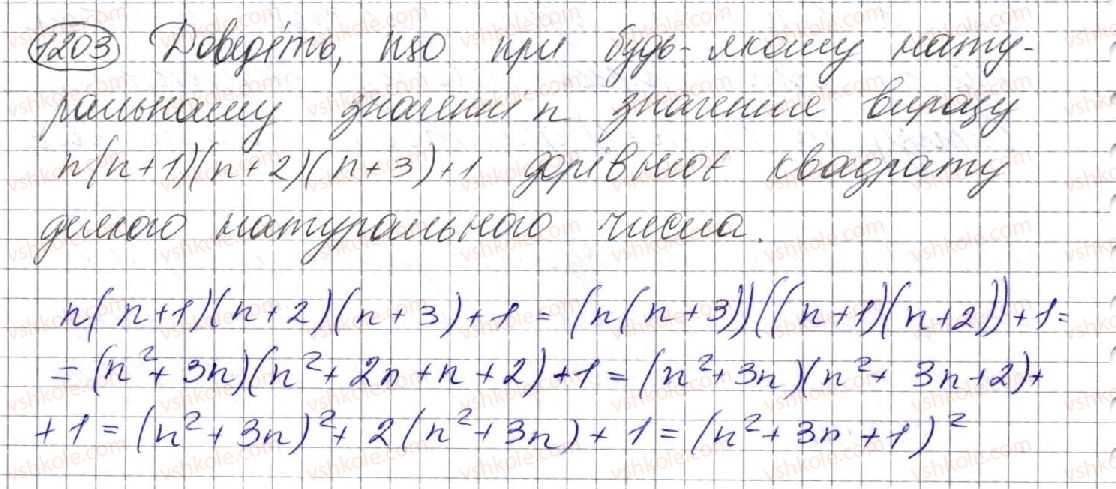 1203 Доведіть, що при будь-якому нату-
ральному значенні n значення виразу
n(n+1)(n+2)(n+3)+1 дорівнює квадрату
деякого натурального числа.
n(n+1)(n+2)(n+3)+1=(n(n+3))((n+1)(n+2))+1=
=(n²+3n)(n²+2n+n+2)+1=(n²+3n)(n²+3n+2)+
+1=(n²+3n)²+2(n²+3n)+1=(n²+3n+1)²